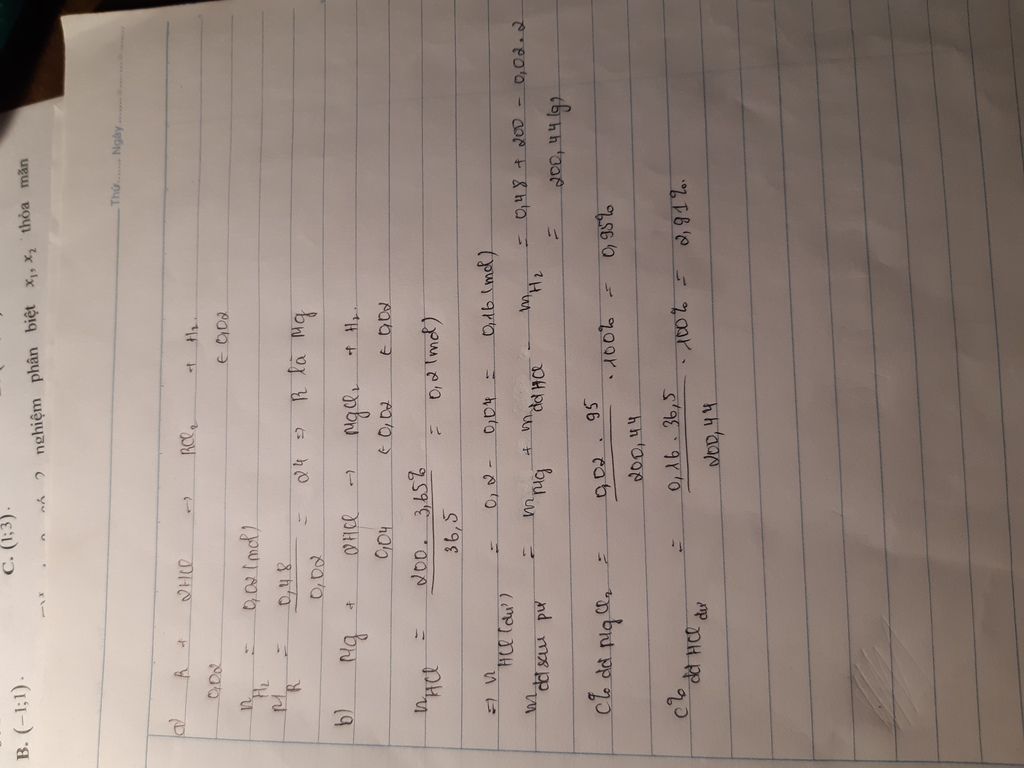 C. (1;3).
B. (−1;1).
nghiệm phân biệt x₁, x₂ thỏa mãn
Thứ ...... Ngày
a) R + 2HCl → RCl₂ + H₂
0,02 ← 0,02
nH₂ = 0,02 (mol)
MR = 0,48 / 0,02 = 24 ⇒ R là Mg
b) Mg + 2HCl → MgCl₂ + H₂
0,04 ← 0,02 ← 0,02
nHCl = 200 . 3,65% / 36,5 = 0,2 (mol)
⇒ nHCl (dư) = 0,2 - 0,04 = 0,16 (mol)
mdd sau pư = mMg + mddHCl - mH₂ = 0,48 + 200 - 0,02.2
= 200,44 (g)
C% dd MgCl₂ = 0,02 . 95 / 200,44 . 100% = 0,95%
C% dd HCl dư = 0,16 . 36,5 / 200,44 . 100% = 2,91%.